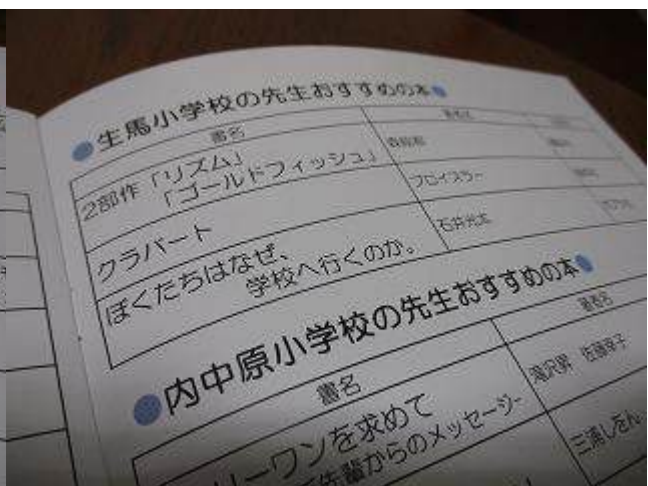 ●生馬小学校の先生おすすめの本●
書名 著者名
2部作「リズム」
「ゴールドフィッシュ」 森絵都
クラバート プロイスラー
ぼくたちはなぜ、 石井光太
学校へ行くのか。
●内中原小学校の先生おすすめの本●
書名 著者名
リーワンを求めて 滝沢昇 佐藤幸子
先輩からのメッセージー 三浦しをん